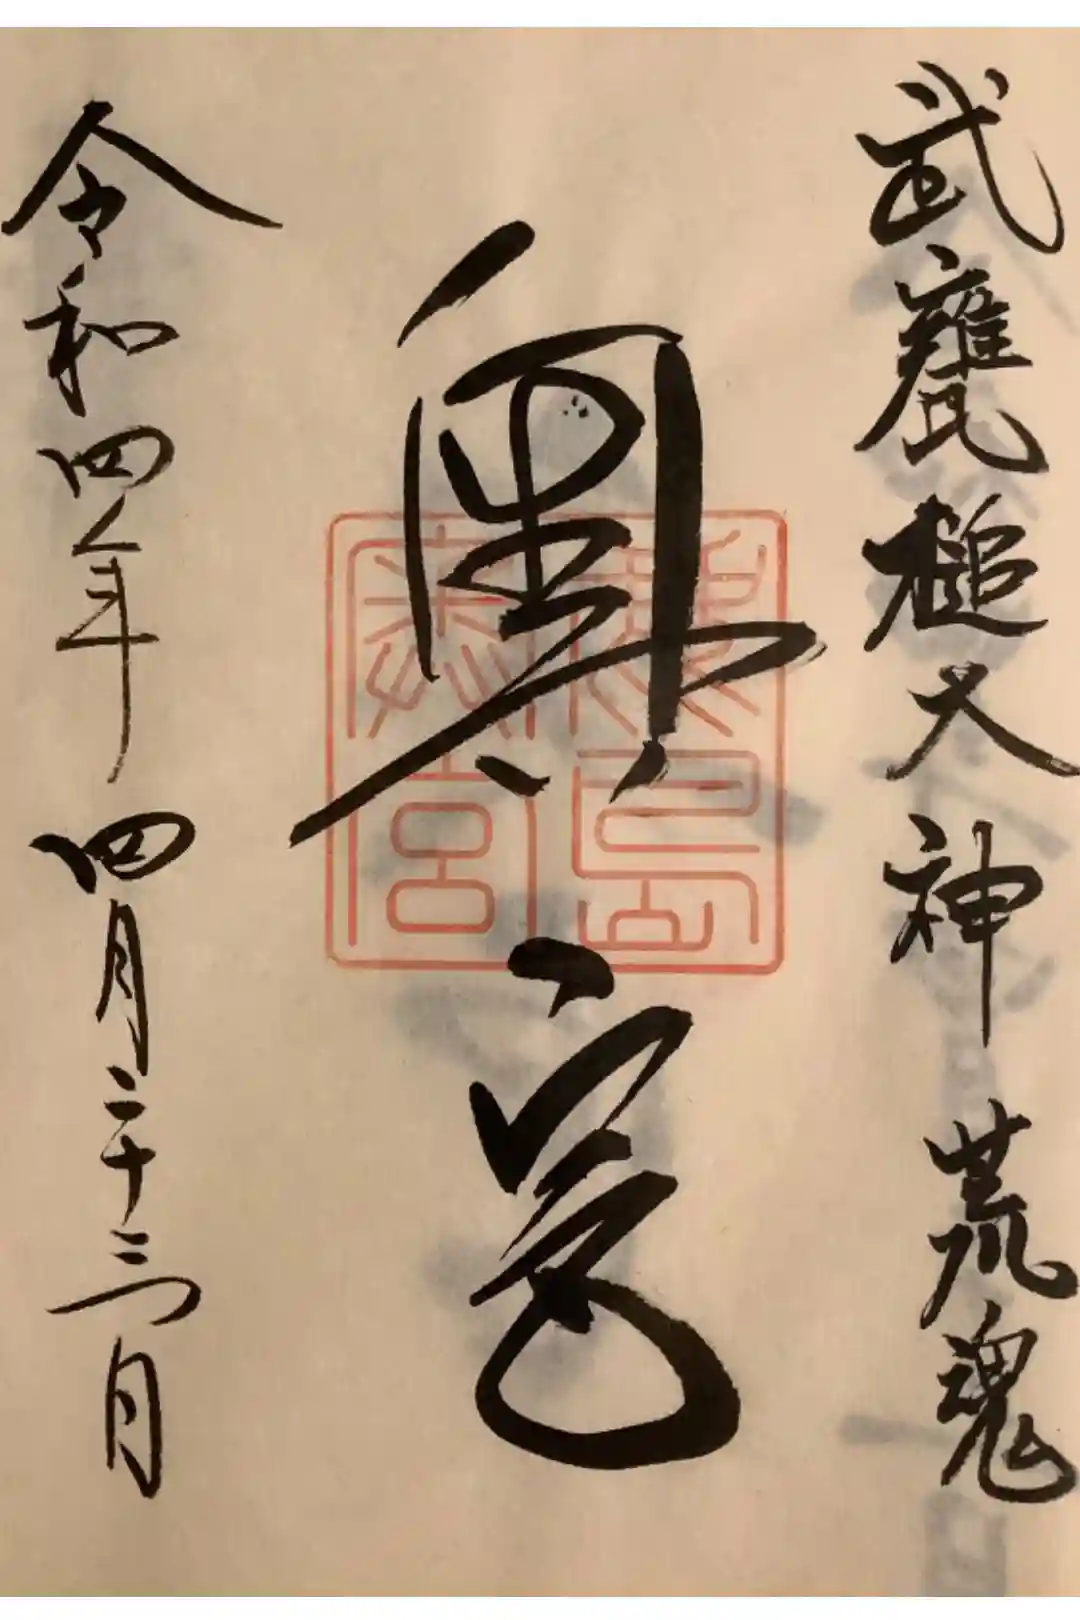 武甕槌大神 荒魂
奥宮
鹿島
奥宮
令和四年四月二十三日